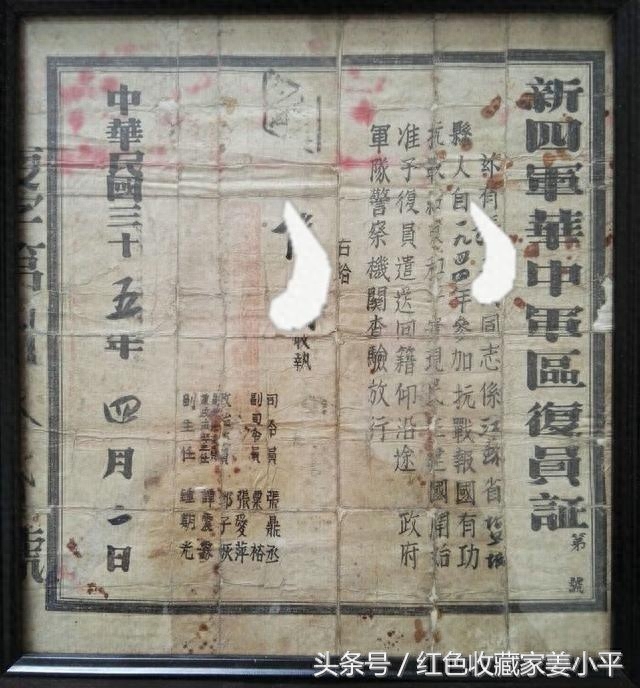 新四軍華中軍區復員証
第 號
茲有 同志係江蘇省
縣人自一九四四年參加抗戰報國有功
抗戰結束和平實現民主建國開始
准予復員遣送回籍仰沿途 政府
軍隊警察機關查驗放行
右給
收執
司令員 張鼎丞
副司令員 粟裕
張愛萍
政治委員 鄧子恢
譚震林
副主任 鍾期光
中華民國三十五年四月一日
復字第 號
头条号 / 红色收藏家姜小平